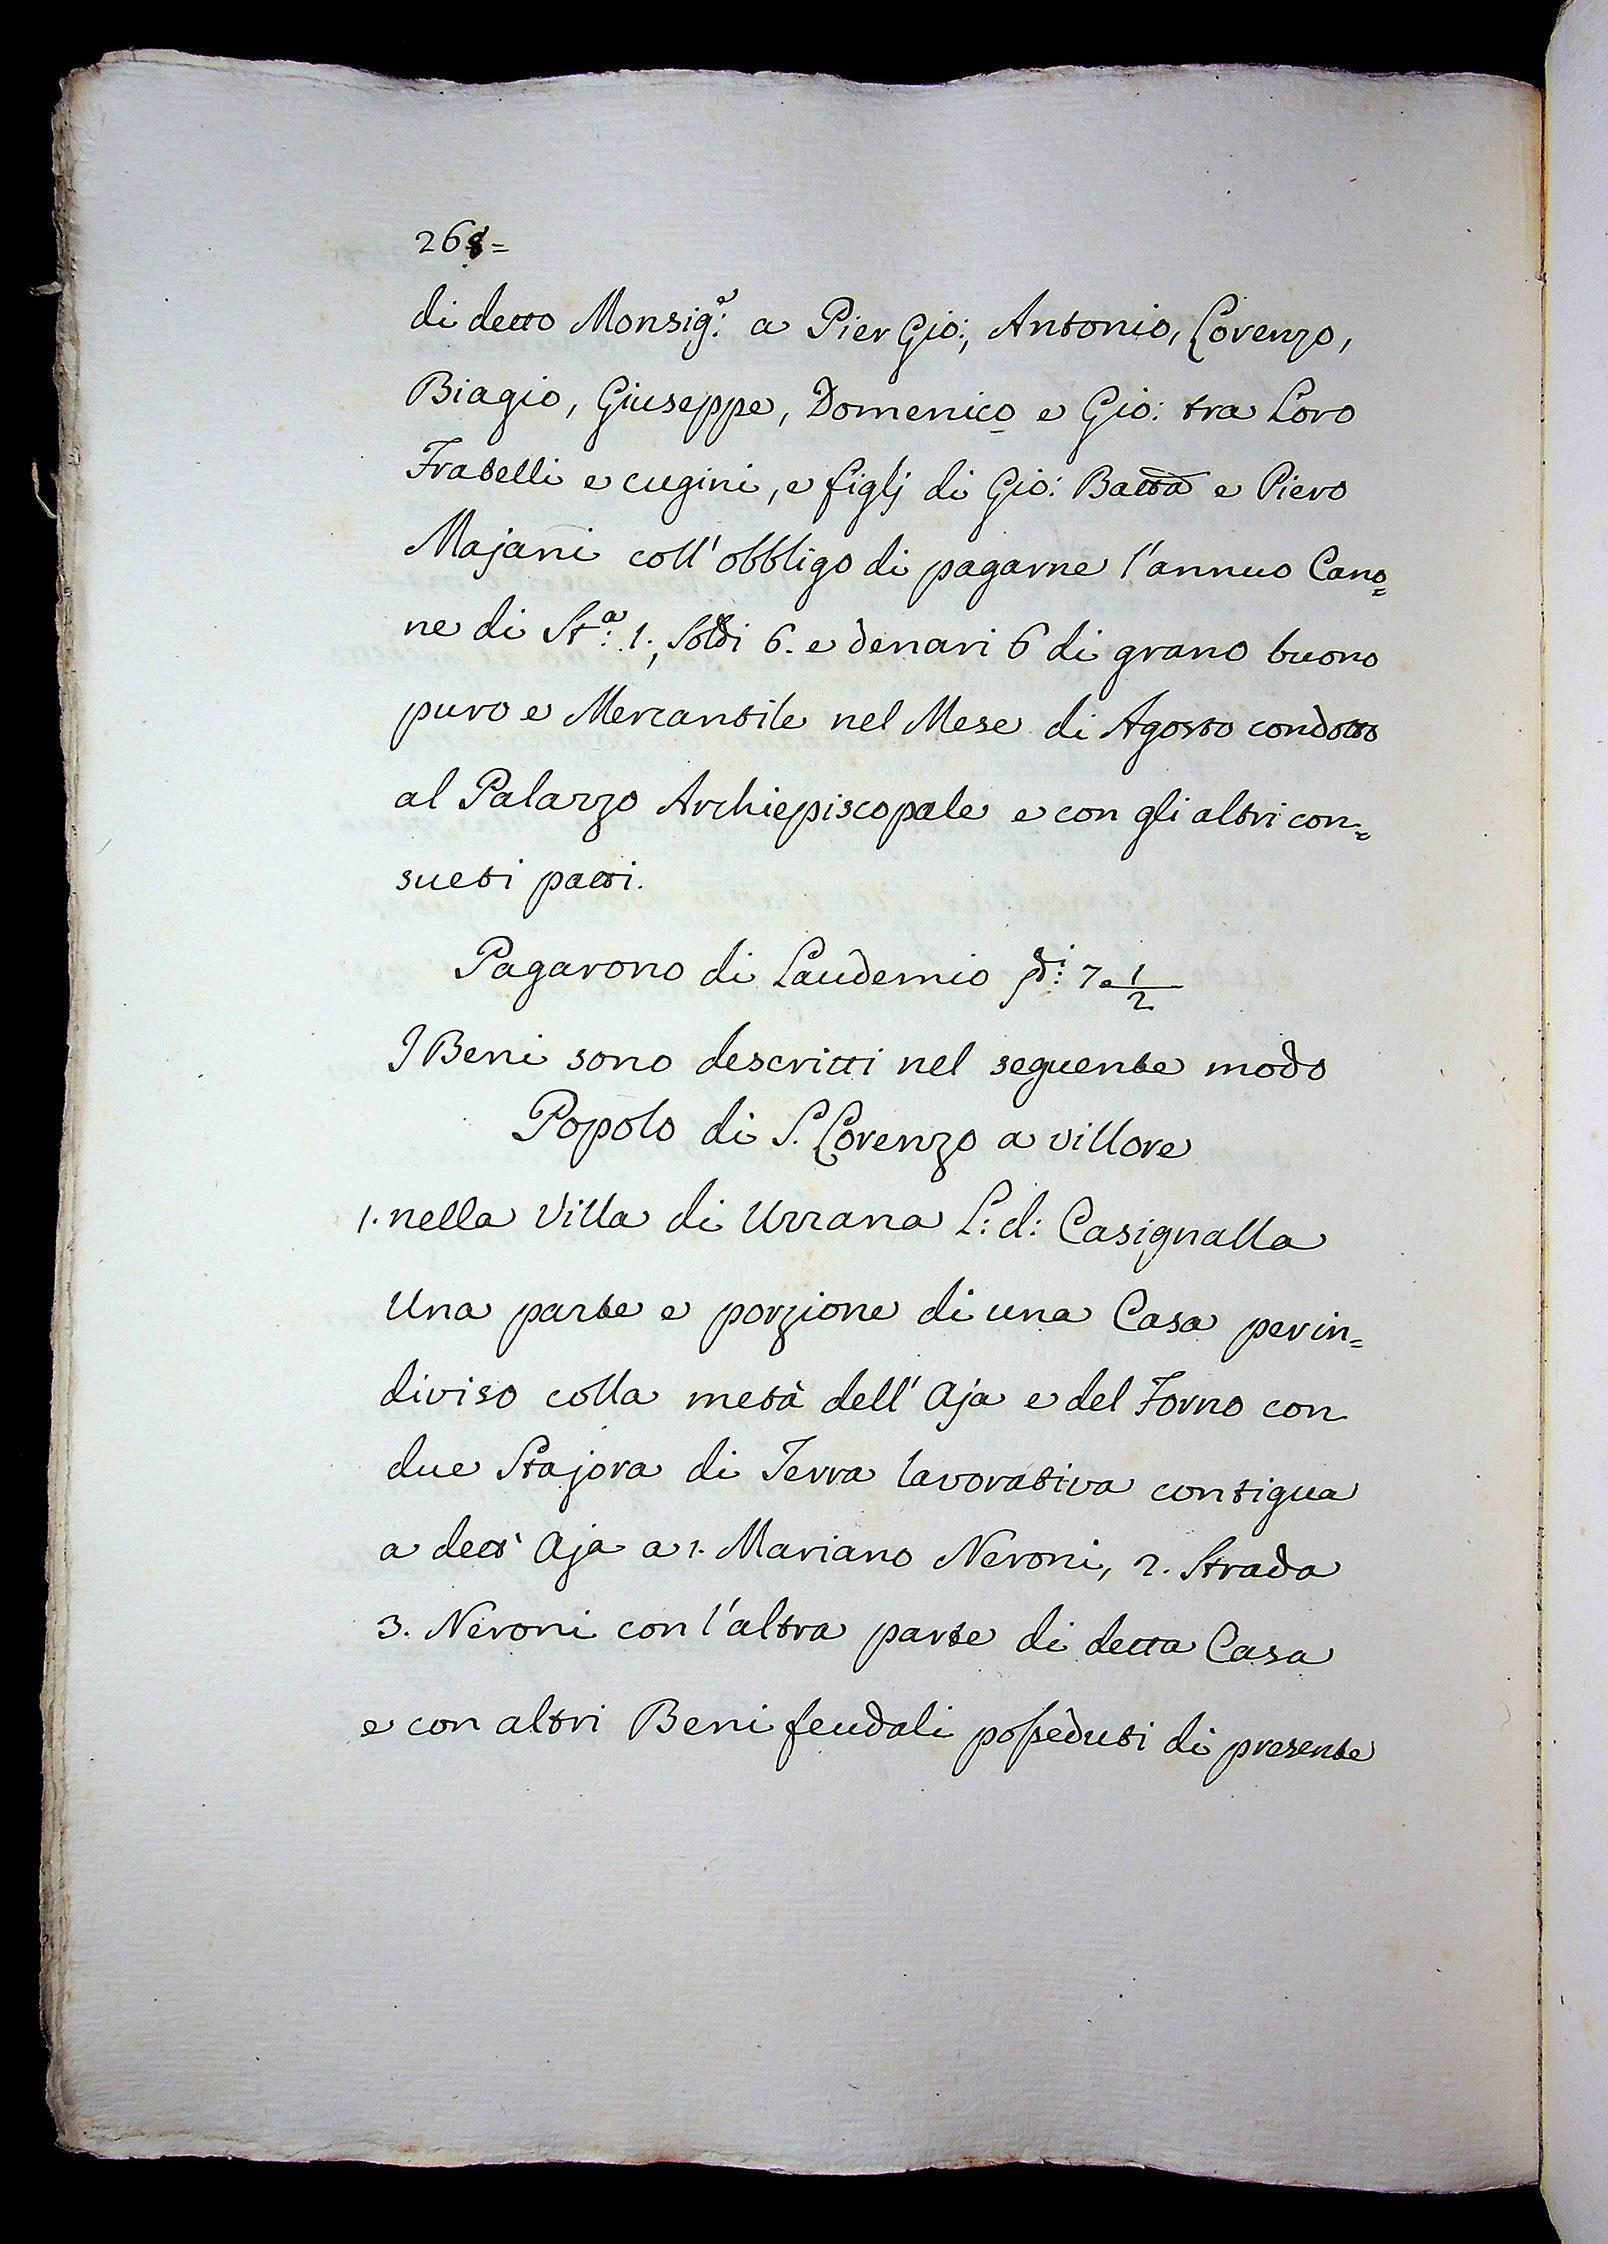 268=
di detto Monsig:e a Pier Gio:, Antonio, Lorenzo,
Biagio, Giuseppe, Domenico e Gio: tra Loro
Fratelli e cugini, e figlj di Gio: Batta e Piero
Majani coll'obbligo di pagarne l'annuo Cano=
ne di St:a 1:, Soldi 6. e denari 6 di grano buono
puro e Mercantile nel Mese di Agosto condotto
al Palazzo Archiepiscopale e con gli altri con=
sueti patti.
Pagarono di Laudemio di: 7. 1/2
I Beni sono descritti nel seguente modo
Popolo di S. Lorenzo a villore
1. nella Villa di Uzzana L: d: Casignalla
Una parte e porzione di una Casa per in=
diviso colla metà dell'Aja e del Forno con
due Stajora di Terra lavorativa contigua
a dett' Aja a 1. Mariano Neroni, 2. Strada
3. Neroni con l'altra parte di detta Casa
e con altri Beni feudali posseduti di presente